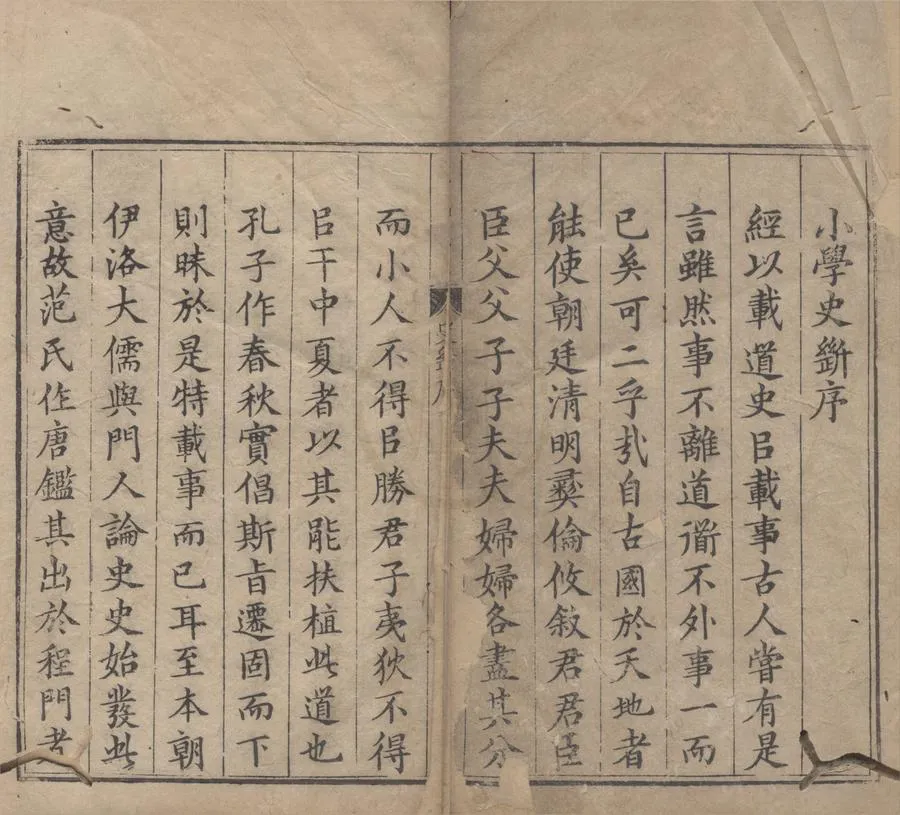 小學史斷序
經以載道史㠯載事古人嘗有是
言雖然事不離道道不外事一而
已矣可二乎哉自古國於天地者
能使朝廷清明彝倫攸敘君君臣
臣父父子子夫夫婦婦各盡其分
而小人不得㠯勝君子夷狄不得
㠯干中夏者以其能扶植此道也
孔子作春秋實倡斯旨遷固而下
則昧於是特載事而已耳至本朝
伊洛大儒與門人論史史始發此
意故范氏作唐鑑其出於程門者